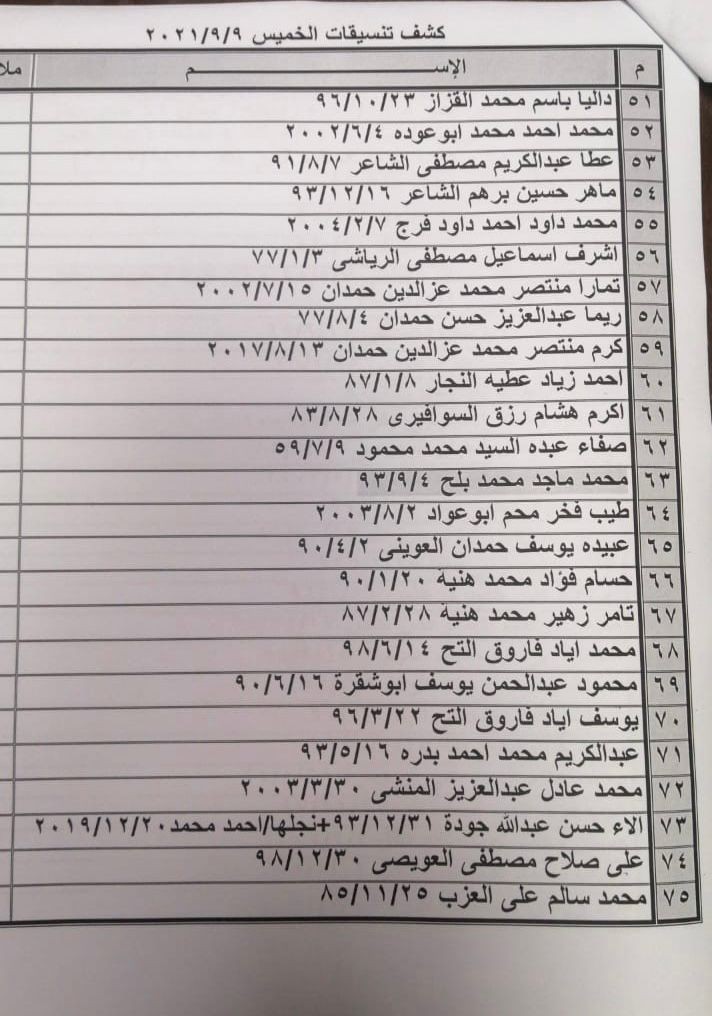 كشف تنسيقات الخميس ٢٠٢١/٩/٩
م الإســـــــــــــــــم ملا
٥١ داليا باسم محمد القزاز ٩٦/١٠/٢٣
٥٢ محمد احمد محمد ابوعوده ٢٠٠٢/٦/٤
٥٣ عطا عبدالكريم مصطفى الشاعر ٩١/٨/٧
٥٤ ماهر حسين برهم الشاعر ٩٣/١٢/١٦
٥٥ محمد داود احمد داود فرج ٢٠٠٤/٢/٧
٥٦ اشرف اسماعيل مصطفى الرياشى ٧٧/١/٣
٥٧ تمارا منتصر محمد عزالدين حمدان ٢٠٠٢/٧/١٥
٥٨ ريما عبدالعزيز حسن حمدان ٧٧/٨/٤
٥٩ كرم منتصر محمد عزالدين حمدان ٢٠١٧/٨/١٣
٦٠ احمد زياد عطيه النجار ٨٧/١/٨
٦١ اكرم هشام رزق السوافيرى ٨٣/٨/٢٨
٦٢ صفاء عبده السيد محمد محمود ٥٩/٧/٩
٦٣ محمد ماجد محمد بلح ٩٣/٩/٤
٦٤ طيب فخر محم ابوعواد ٢٠٠٣/٨/٢
٦٥ عبيده يوسف حمدان العوينى ٩٠/٤/٢
٦٦ حسام فؤاد محمد هنية ٩٠/١/٢٠
٦٧ تامر زهير محمد هنية ٨٧/٢/٢٨
٦٨ محمد اياد فاروق التح ٩٨/٦/١٤
٦٩ محمود عبدالحمن يوسف ابوشقرة ٩٠/٦/١٦
٧٠ يوسف اياد فاروق التح ٩٦/٣/٢٢
٧١ عبدالكريم محمد احمد بدره ٩٣/٥/١٦
٧٢ محمد عادل عبدالعزيز المنشى ٢٠٠٣/٣/٣٠
٧٣ الاء حسن عبدالله جودة ٩٣/١٢/٣١+نجلها/احمد محمد٢٠١٩/١٢/٢٠
٧٤ على صلاح مصطفى العويصى ٩٨/١٢/٣٠
٧٥ محمد سالم على العزب ٨٥/١١/٢٥